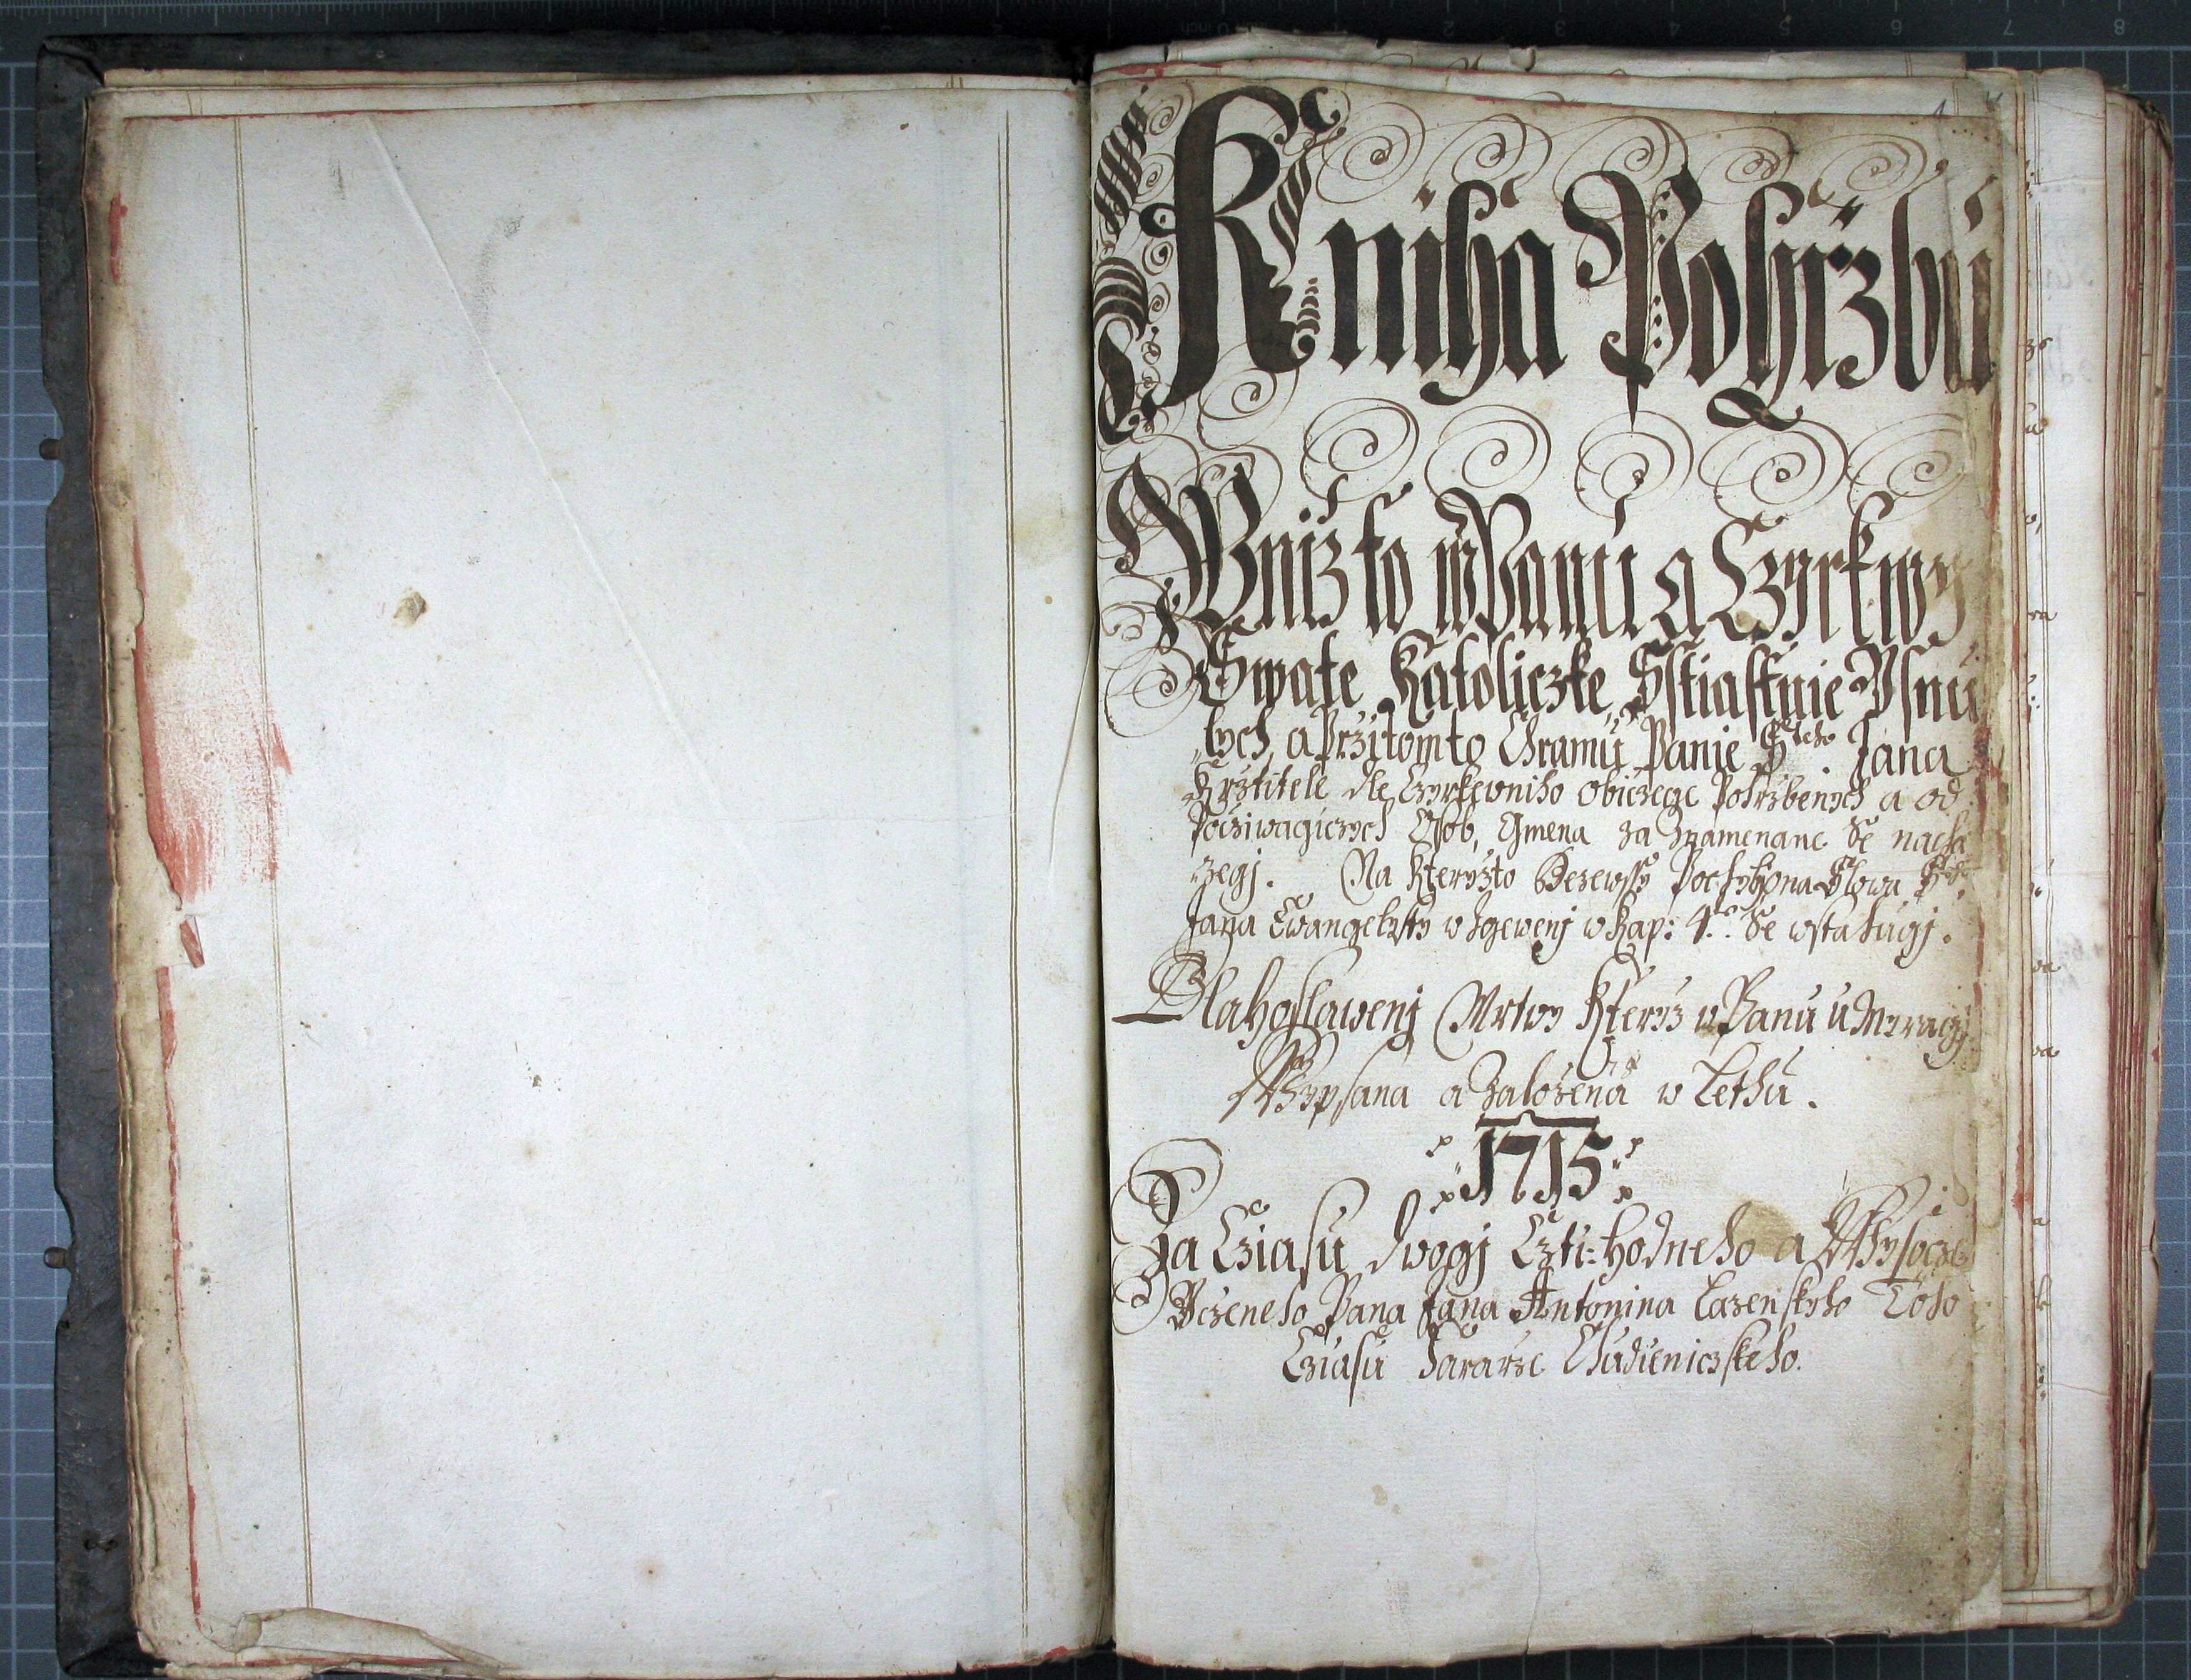 Kniha Pohrzbu
Wniz to w Panu a Czyrkwy
Swate Katoliczke Sstiastnie Usnu
lych, a Przitomto Chramu Panie Steho Jana
Krztitele dle Czyrkewniho obiczege Pohrzbenych a od
Pocziwagiczych Osob, Gmena za Znamenane Se nacha
zegj. Na kteryzto Slowa
Jana Ewangelysty w Zgewenj w Kap: 4. Se wstahugj.
Blahoslawenj Mrtwy kteryz w Panu umyragj
Wypsana a Zalozena w Lethu.
1715
Za Cziasu dwogj Czti-hodneho a Wysocze
Uczeneho Pana Jana Antonina Lazenskyho Toho
Cziasu Fararze Chudieniczskeho.